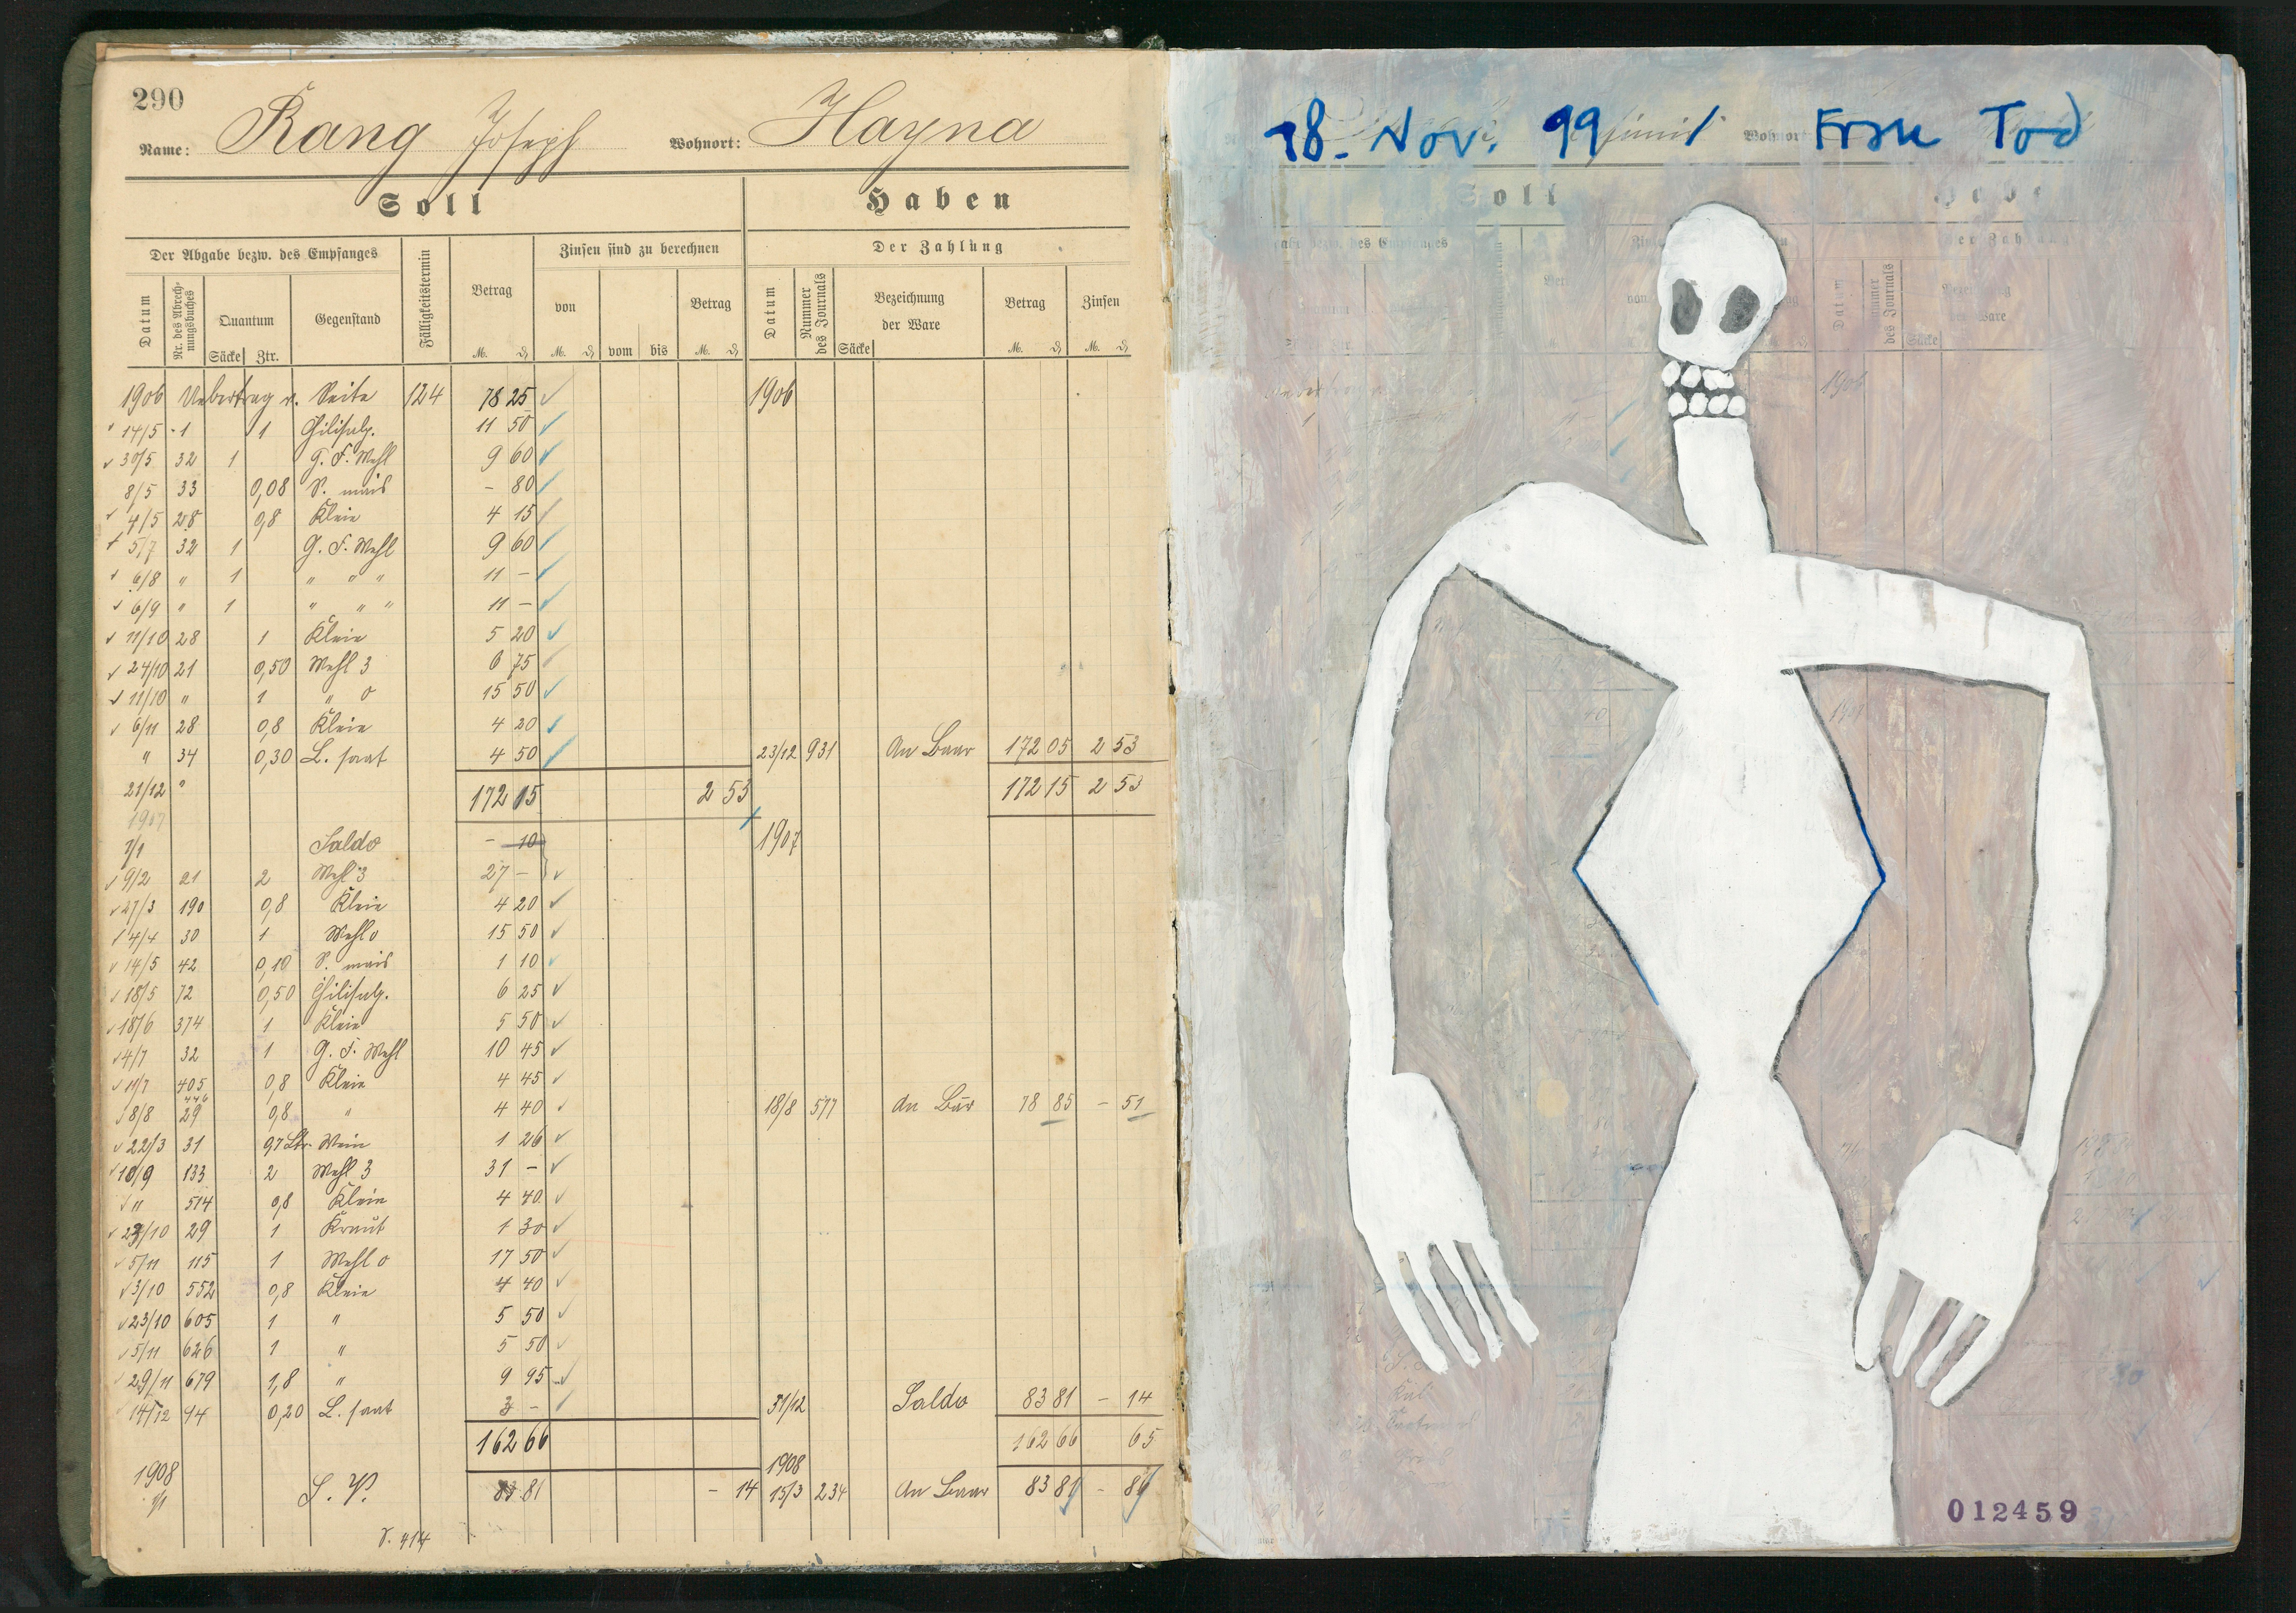 290
Name: Rang Joseph Wohnort: Hayna
Soll Haben
Der Abgabe bezw. des Empfanges Fälligkeitstermin Betrag Zinsen sind zu berechnen Der Zahlung
Datum Nr. des Abrechnungsbuches Quantum Gegenstand von Betrag Datum Nummer des Journals Bezeichnung der Ware Betrag Zinsen
Säcke Ztr. M. ₰ M. ₰ vom bis M. ₰ Säcke M. ₰ M. ₰
1906 Uebertrag v. Seite 124 78 25 1906
14/5 1 1 11 50
30/5 32 1 G. F. Mehl 9 60
8/5 33 0,08 S. mais - 80
4/5 28 0,8 Kleie 4 15
5/7 32 1 G. F. Mehl 9 60
6/8 " 1 " " " 11 -
6/9 " 1 " " " 11 -
11/10 28 1 Kleie 5 20
24/10 21 0,50 Mehl 3 6 75
11/10 " 1 " 0 15 50
6/11 28 0,8 Kleie 4 20
" 34 0,30 L. saat 4 50 23/12 931 An Baar 172 05 2 53
21/12 " 172 15 2 53 172 15 2 53
1907
1/1 Saldo - 10 1907
9/2 21 2 Mehl 3 27 -
27/3 190 0,8 Kleie 4 20
4/4 30 1 Mehl 0 15 50
14/5 42 0,10 S. mais 1 10
18/5 72 0,50 6 25
18/6 374 1 Kleie 5 50
4/7 32 1 G. F. Mehl 10 45
11/7 405 0,8 Kleie 4 45
446
8/8 29 0,8 " 4 40 18/8 577 An Bar 78 85 - 51
22/3 31 97 Ltr. Wein 1 26
10/9 133 2 Mehl 3 31 -
" 514 0,8 Kleie 4 40
23/10 29 1 Kraut 1 30
5/11 115 1 Mehl 0 17 50
3/10 552 0,8 Kleie 4 40
23/10 605 1 " 5 50
5/11 626 1 " 5 50
29/11 679 1,8 " 9 95
14/12 94 0,20 L. saat 3 - 31/12 Saldo 83 81 - 14
162 66 162 66 65
1908 1908
1/1 S. V. 83 81 - 14 15/3 234 An Baar 83 81 - 84
S. 414
18. Nov. 99 Frau Tod
Wohnort
Soll
des Empfanges
Datum
des Journals
Ware
Säcke
1906
012459